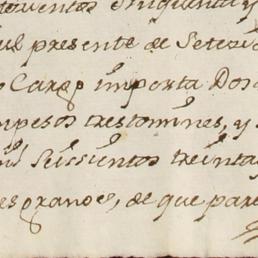 cinquenta y
presente de Seteci
Cargo importa Dos
pesos tres tomines, y
Seissientos treinta
es granos, de que pare